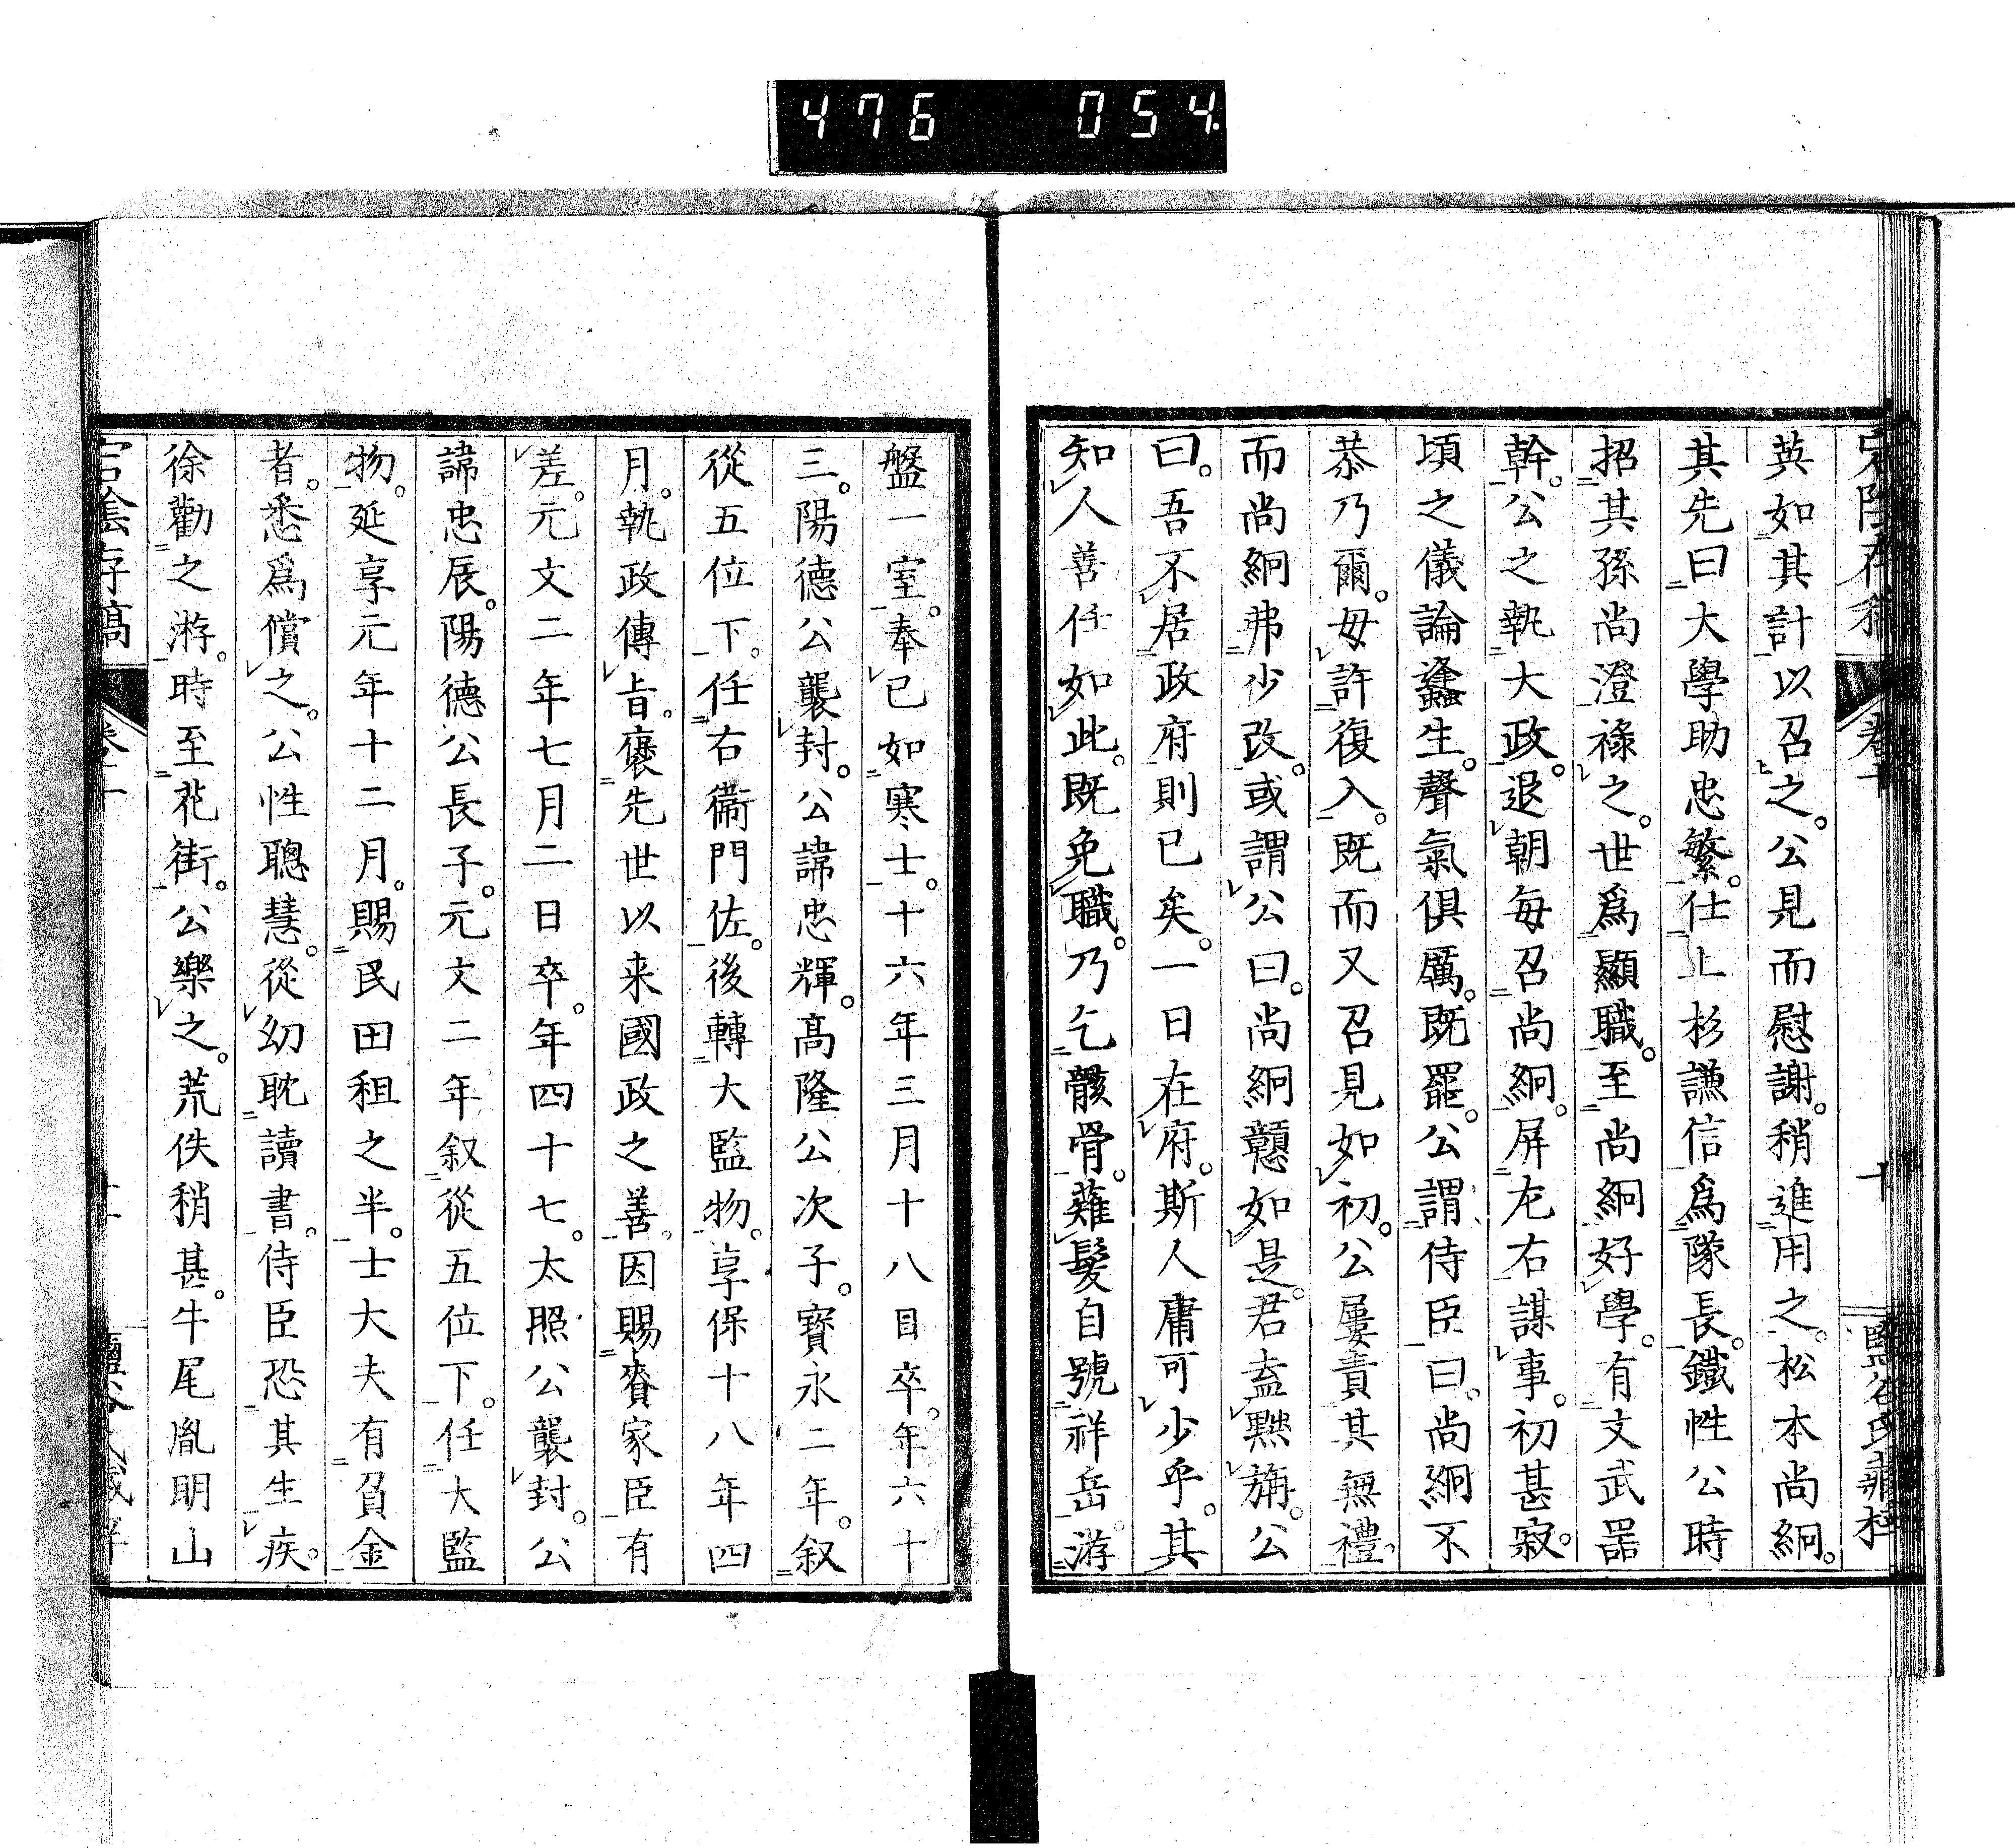 476 054
英如其計以召之。公見而慰謝。稍進用之。松本尚絅。
其先曰大學助忠繁。仕上杉謙信爲隊長。鐵性公時
招其孫尚澄祿之。世爲顯職。至尚絅好學。有文武器
幹。公之執大政。退朝每召尚絅。屏左右謀事。初甚寂。
頃之儀論蠭生。聲氣俱厲。既罷。公謂侍臣曰。尚絅不
恭乃爾。毋許復入。既而又召見如初。公屢責其無禮。
而尚絅弗少改。或謂公曰。尚絅戇如是。君盍黜旃。公
曰。吾不居政府則已矣。一日在府。斯人庸可少乎。其
知人善任如此。既免職。乃乞骸骨。薙髮自號祥岳。游
盤一室。奉已如寒士。十六年三月十八日卒。年六十
三。陽德公襲封。公諱忠輝。高隆公次子。寶永二年。叙
從五位下。任右衞門佐。後轉大監物。享保十八年四
月。執政傳旨。褒先世以来國政之善。因賜賚家臣有
差。元文二年七月二日卒。年四十七。太照公襲封。公
諱忠辰。陽德公長子。元文二年叙從五位下。任大監
物。延享元年十二月。賜民田租之半。士大夫有負金
者。悉爲償之。公性聰慧。從幼耽讀書。侍臣恐其生疾。
徐勸之游。時至花街。公樂之。荒佚稍甚。牛尾胤明山